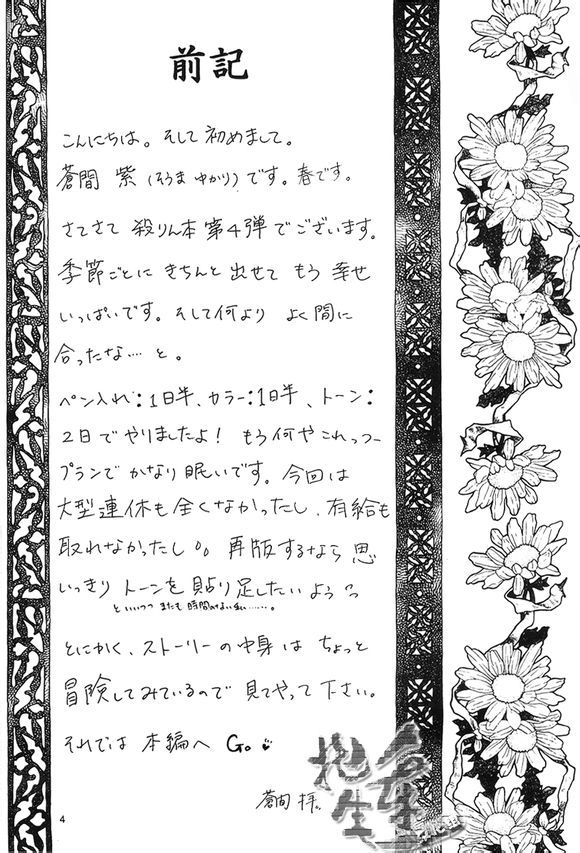 前記
こんにちは。そして初めまして。
蒼間 紫(そうま ゆかり)です。春です。
さてさて 殺りん本 第4弾でございます。
季節ごとに きちんと出せて もう 幸せ
いっぱいです。そして何より よく間に
合ったな… と。
ペン入れ:1日半、カラー:1日半、トーン:
2日でやりましたよ! もう何やこれっつー
プランで かなり眠いです。今回は
大型連休も全くなかったし、有給も
取れなかったし。。再版するなら 思
いっきり トーンを 貼り足したいよぅぅ
といいつつ またも 時間
とにかく、ストーリーの中身は ちょっと
冒険してみているので 見てやって下さい。
それでは 本編へ Go
蒼間 拝。
4